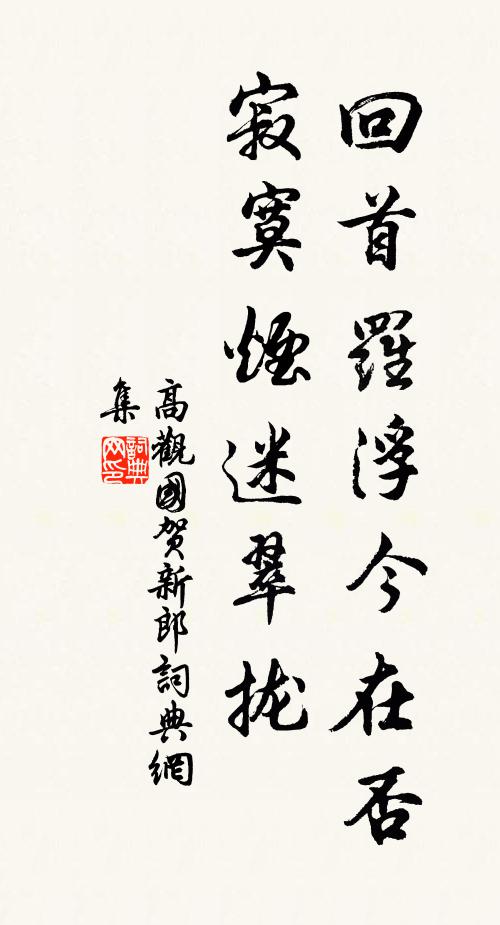 回首羅浮今在否
寂寞煙迷翠拢
高觀國賀新郎詞典網
集
詞典
网印